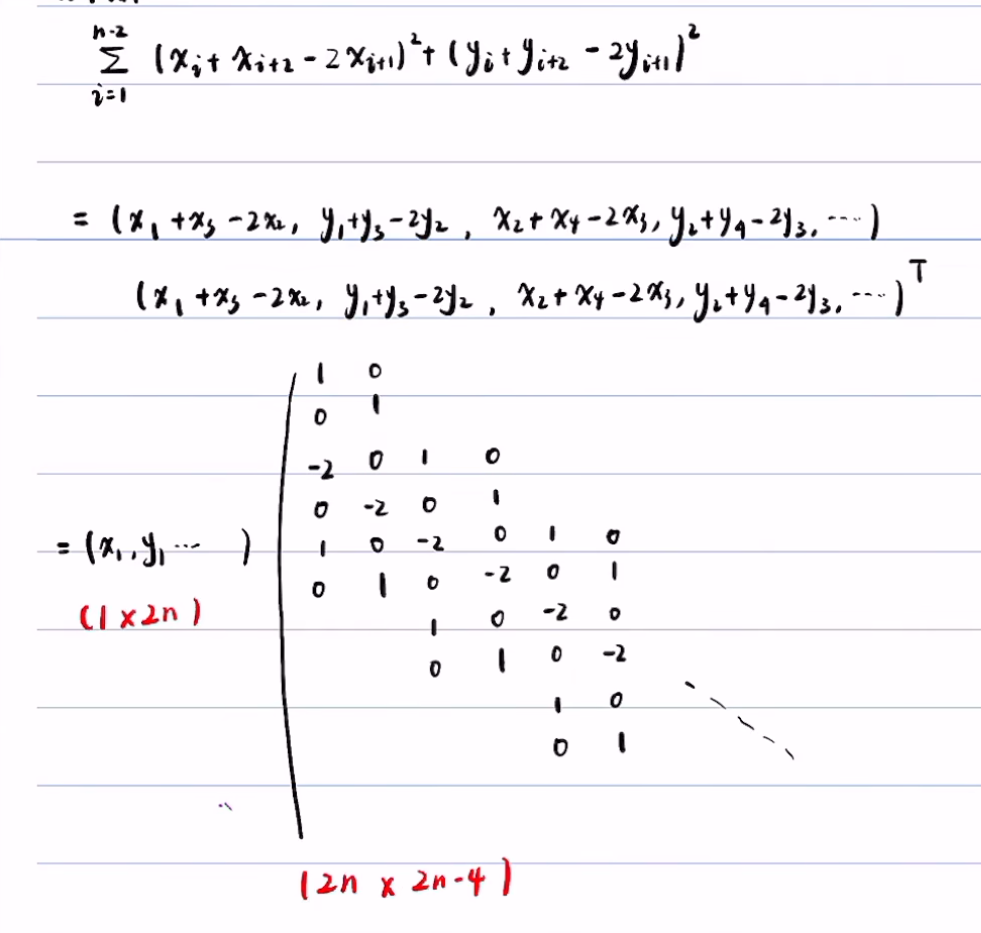 n-2
Σ (x_i + x_{i+2} - 2x_{i+1})^2 + (y_i + y_{i+2} - 2y_{i+1})^2
i=1
= (x_1 + x_3 - 2x_2, y_1 + y_3 - 2y_2, x_2 + x_4 - 2x_3, y_2 + y_4 - 2y_3, ....)
(x_1 + x_3 - 2x_2, y_1 + y_3 - 2y_2, x_2 + x_4 - 2x_3, y_2 + y_4 - 2y_3, ....)^T
1 0
0 1
-2 0 1 0
0 -2 0 1
= (x_1, y_1 ... ) 1 0 -2 0 1 0
0 1 0 -2 0 1
(1 x 2n)
1 0 -2 0
0 1 0 -2
1 0
0 1
(2n x 2n-4)